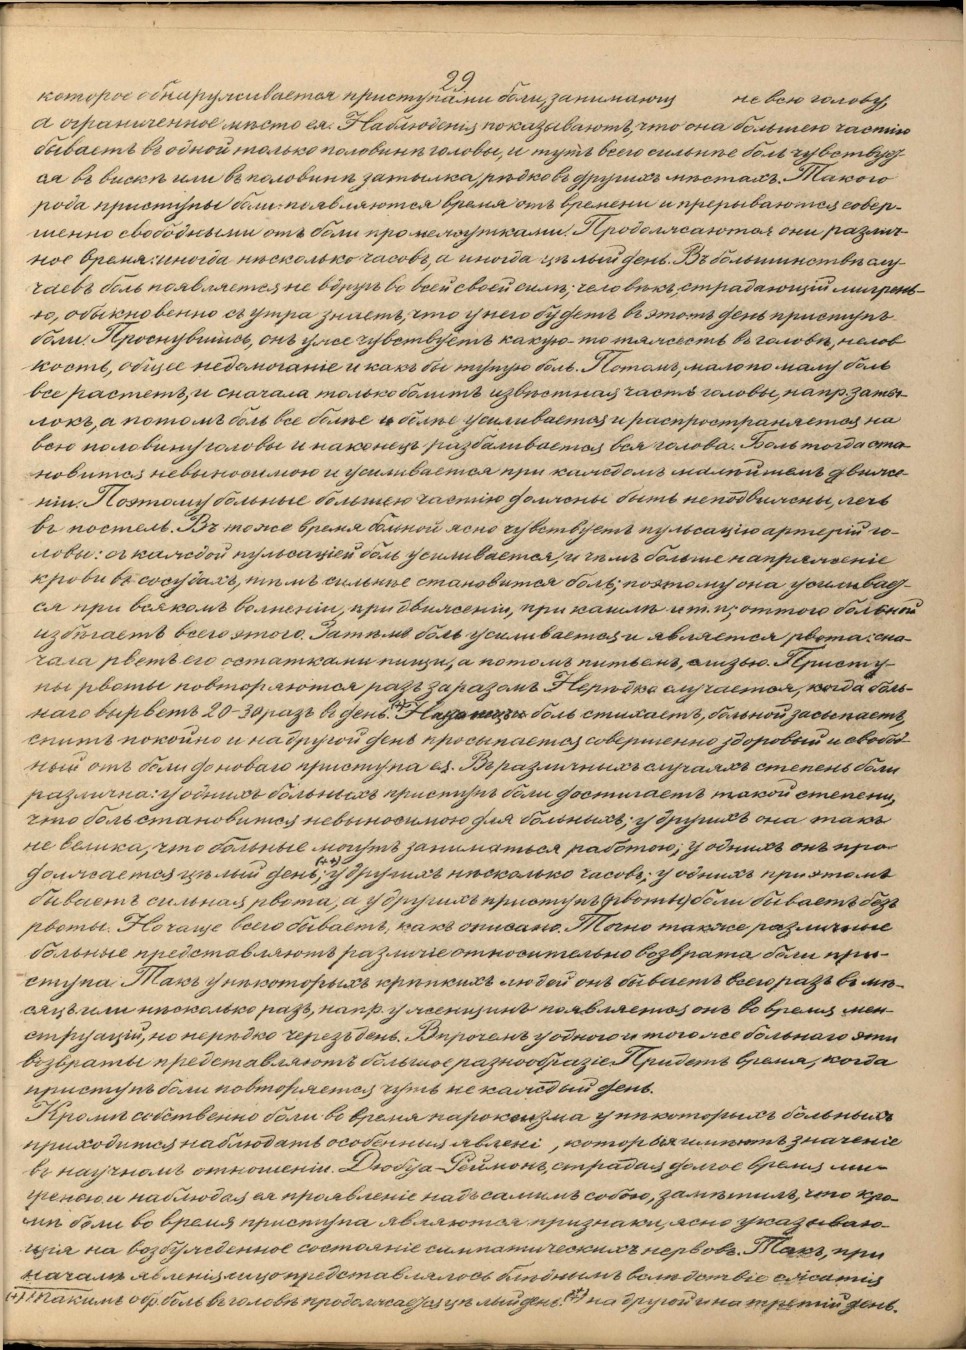 29
которое обнаруживается приступами боли, занимающ не всю голову,
а ограниченное мѣсто ея. Наблюденія показываютъ, что она большею частію
бываетъ въ одной только половинѣ головы, и тутъ всего сильнѣе боль чувствует-
ся въ вискѣ или въ половинѣ затылка, рѣдко въ другихъ мѣстахъ. Такого
рода приступы боли появляются время отъ времени и прерываются совер-
шенно свободными отъ боли промежутками. Продолжаются они различ-
ное время: иногда нѣсколько часовъ, а иногда цѣлый день. Въ большинствѣ слу-
чаевъ боль появляется не вдругъ во всей своей силѣ; человѣкъ, страдающій мигрень-
ю, обыкновенно съ утра знаетъ, что у него будетъ въ этотъ день приступъ
боли. Проснувшись, онъ уже чувствуетъ какую-то тяжесть въ головѣ, нелов
кость, общее недомоганіе и какъ бы тупую боль. Потомъ, мало по малу боль
все растетъ, и сначала только болитъ извѣстная часть головы, напр. заты-
локъ, а потомъ боль все болѣе и болѣе усиливается и распространяется на
всю половину головы и наконецъ разбаливается вся голова. Боль тогда ста-
новится невыносимою и усиливается при каждомъ малѣйшемъ движе-
ніи. Поэтому больные большею частію должны быть неподвижны, лечь
въ постель. Въ тоже время больной ясно чувствуетъ пульсацію артерій го-
ловы: съ каждой пульсаціей боль усиливается, и чѣмъ больше напряженіе
крови въ сосудахъ, тѣмъ сильнѣе становится боль; поэтому она усиливает-
ся при всякомъ волненіи, при движеніи, при кашлѣ и т. п; оттого больной
избѣгаетъ всего этого. Затѣмъ боль усиливается и является рвота: сна-
чала рветъ его остатками пищи, а потомъ питьемъ, слизью. Присту-
пы рвоты повторяются разъ за разомъ. Нерѣдко случается, когда боль-
наго вырветъ 20-30 разъ въ день. (+) Наконецъ боль стихаетъ, больной засыпаетъ,
спитъ покойно и на другой день просыпается совершенно здоровый и свобод-
ный отъ боли до новаго приступа ея. Въ различныхъ случаяхъ степень боли
различна: у однихъ больныхъ приступъ боли достигаетъ такой степени,
что боль становится невыносимою для больныхъ; у другихъ она такъ
не велика, что больные могутъ заниматься работою; у однихъ онъ про-
должается цѣлый день, (++) у другихъ нѣсколько часовъ; у однихъ при этомъ
бываетъ сильная рвота, а у другихъ приступъ (рвоты) боли бываетъ безъ
рвоты. Но чаще всего бываетъ, какъ описано. Точно также различные
больные представляютъ различіе относительно возврата боли при-
ступа. Такъ у нѣкоторыхъ крѣпкихъ людей онъ бываетъ всего разъ въ мѣ-
сяцъ или нѣсколько разъ, напр. у женщинъ появляется онъ во время мен-
струацій, но нерѣдко черезъ день. Впрочемъ у одного и того же больнаго эти
возвраты представляютъ большое разнообразіе. Придетъ время, когда
приступъ боли повторяется чуть не каждый день.
Кромѣ собственно боли во время пароксизма у нѣкоторыхъ больныхъ
приходится наблюдать особенныя явлені, которыя имѣютъ значеніе
въ научномъ отношеніи. Дюбуа-Реймонъ, страдая долгое время ми-
гренью и наблюдая ея проявленіе надъ самимъ собою, замѣтилъ, что кро-
мѣ боли во время приступа являются признаки, ясно указываю-
щія на возбужденное состояніе симпатическихъ нервовъ. Такъ, при
началѣ явленія лицо представлялось блѣднымъ вслѣдствіе сжатія
(+) Такимъ обр. боль въ головѣ продолжается цѣлый день. (++) на другой и на третій день.